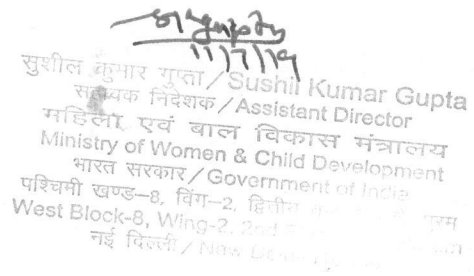 11/7/19
सुशील कुमार गुप्ता / Sushil Kumar Gupta
सहायक निदेशक / Assistant Director
महिला एवं बाल विकास मंत्रालय
Ministry of Women & Child Development
भारत सरकार / Government of India
पश्चिमी खण्ड-8, विंग-2, द्वितीय
West Block-8, Wing-2, 2nd
नई दिल्ली / New